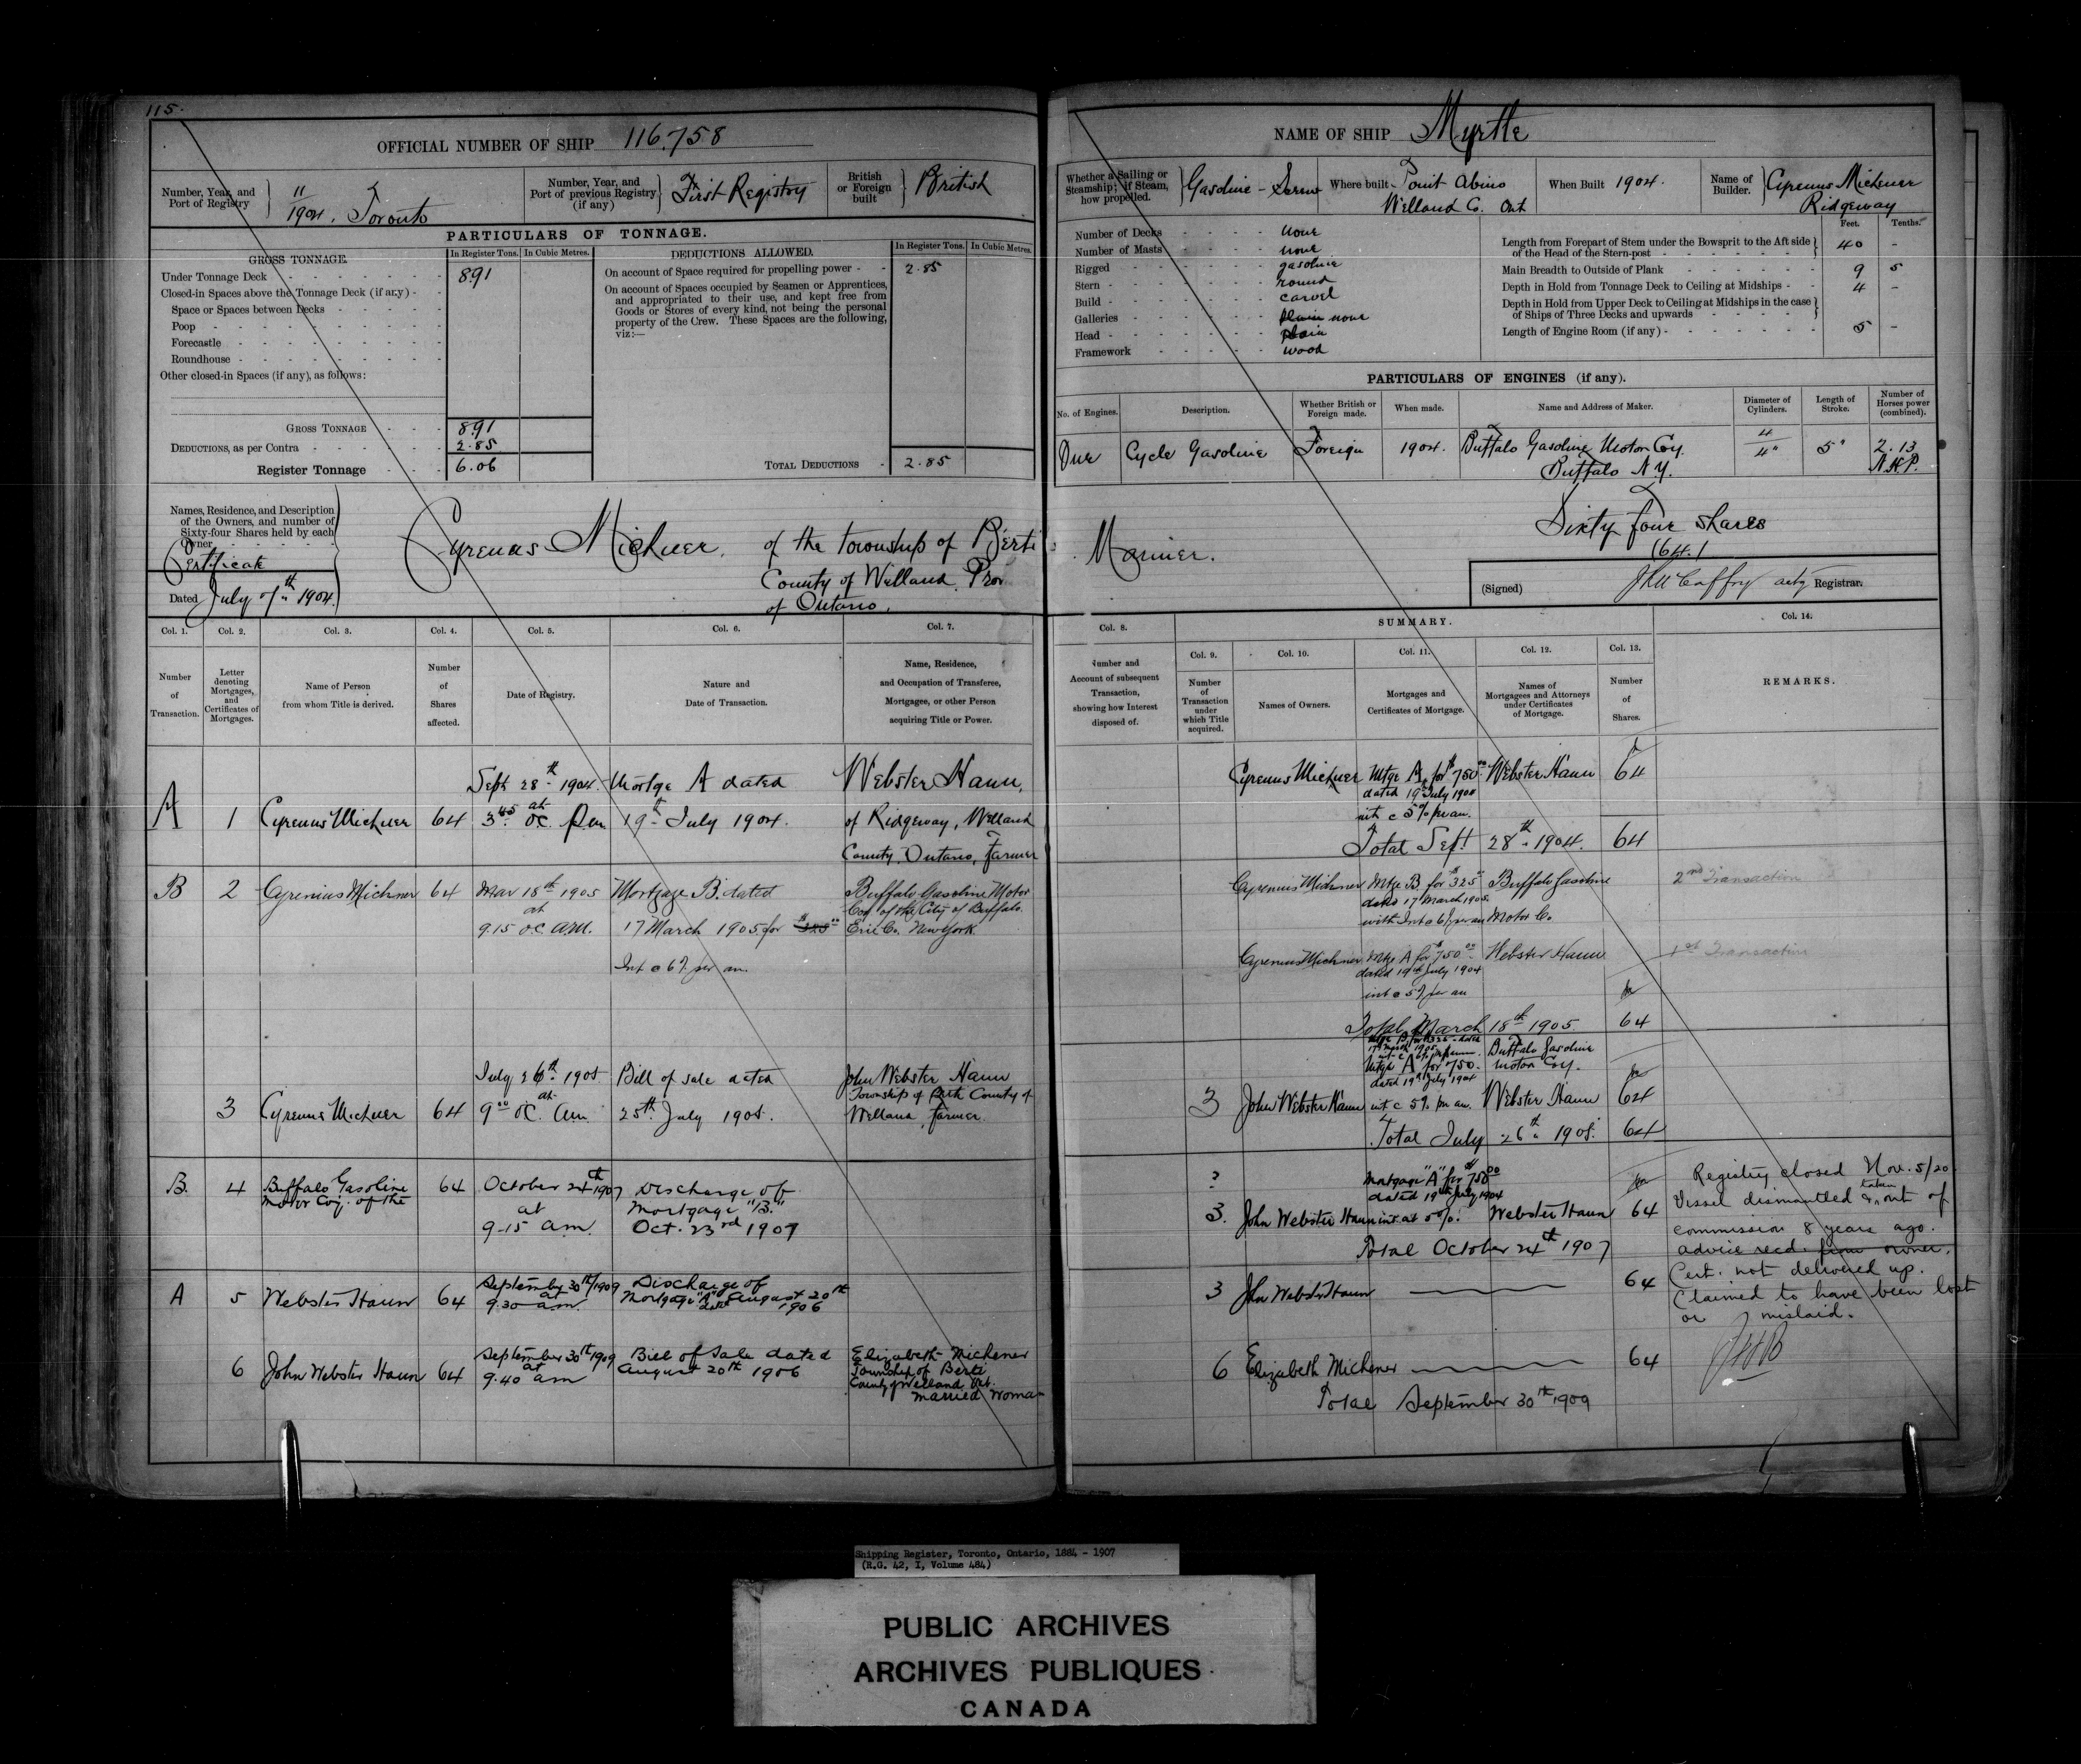 115.
OFFICIAL NUMBER OF SHIP 116.758
Number, Year, and Port of Registry } 11/1904. Toronto
Number, Year, and Port of previous Registry (if any) } First Registry
British or Foreign built } British
PARTICULARS OF TONNAGE.
GROSS TONNAGE.
In Register Tons. In Cubic Metres.
DEDUCTIONS ALLOWED.
In Register Tons. In Cubic Metres.
Under Tonnage Deck 8.91
Closed-in Spaces above the Tonnage Deck (if any)
Space or Spaces between Decks
Poop
Forecastle
Roundhouse
Other closed-in Spaces (if any), as follows:
On account of Space required for propelling power 2.85
On account of Spaces occupied by Seamen or Apprentices,
and appropriated to their use, and kept free from
Goods or Stores of every kind, not being the personal
property of the Crew. These Spaces are the following,
viz:—
GROSS TONNAGE 8.91
DEDUCTIONS, as per Contra 2.85
Register Tonnage 6.06
TOTAL DEDUCTIONS 2.85
Names, Residence, and Description
of the Owners, and number of
Sixty-four Shares held by each
Owner
Certificate
Dated July 7th 1904.
Cyrenus Michner, of the township of Berti
County of Welland Prov
of Ontario.
Col. 1. Col. 2. Col. 3. Col. 4. Col. 5. Col. 6. Col. 7.
Number of Transaction.
Letter denoting Mortgages, and Certificates of Mortgages.
Name of Person from whom Title is derived.
Number of Shares affected.
Date of Registry.
Nature and Date of Transaction.
Name, Residence, and Occupation of Transferee, Mortgagee, or other Person acquiring Title or Power.
A 1 Cyrenus Michner 64
Sept 28th 1904. at 3.45 o.c. p.m.
Mortge A dated
19th July 1904.
Webster Haun,
of Ridgeway, Welland
County, Ontario, Farmer
B 2 Cyrenius Michner 64
Mar 18th 1905
at
9.15 o.c. A.M.
Mortgage B. dated
17 March 1905 for $325.00
Int @ 6% per an.
Buffalo Gasoline Motor
Coy. of the City of Buffalo.
Erie Co. New York.
3 Cyrenus Michner 64
July 26th 1905
at
9.00 o.c. a.m.
Bill of sale dated
25th July 1905.
John Webster Haun
Township of Berti County of
Welland, Farmer.
B. 4 Buffalo Gasoline
Motor Coy. of the
64
October 24th 1907
at
9-15 a.m.
Discharge of
Mortgage "B."
Oct. 23rd 1907
A 5 Webster Haun 64
September 30th/1909
at
9.30 a.m.
Discharge of
Mortgage "A" dated August 20th
1906
6 John Webster Haun 64
September 30th 1909
at
9.40 am
Bill of Sale dated
August 20th 1906
Elizabeth Michener
Township of Berti
County of Welland Ont.
Married Woman
NAME OF SHIP Myrtle
Whether a Sailing or Steamship; if Steam, how propelled. } Gasoline - Screw
Where built Point Abino
Welland Co. Ont
When Built 1904.
Name of Builder. } Cyrenus Michener
Ridgeway
Number of Decks none
Number of Masts none
Rigged gasoline
Stern round
Build carvel
Galleries none
Head plain
Framework wood
Feet. Tenths.
Length from Forepart of Stem under the Bowsprit to the Aft side of the Head of the Stern-post 40 -
Main Breadth to Outside of Plank 9 5
Depth in Hold from Tonnage Deck to Ceiling at Midships 4 -
Depth in Hold from Upper Deck to Ceiling at Midships in the case of Ships of Three Decks and upwards
Length of Engine Room (if any) 5 -
PARTICULARS OF ENGINES (if any).
No. of Engines. Description. Whether British or Foreign made. When made. Name and Address of Maker. Diameter of Cylinders. Length of Stroke. Number of Horses power (combined).
One Cycle Gasoline Foreign 1904. Buffalo Gasoline Motor Coy.
Buffalo N.Y.
4
4" 5" 2.13
N.H.P.
Mariner.
Sixty four shares
(64.)
(Signed) J McCaffry actg Registrar.
Col. 8.
SUMMARY.
Col. 9. Col. 10. Col. 11. Col. 12. Col. 13. Col. 14.
Number and Account of subsequent Transaction, showing how Interest disposed of.
Number of Transaction under which Title acquired.
Names of Owners.
Mortgages and Certificates of Mortgage.
Names of Mortgagees and Attorneys under Certificates of Mortgage.
Number of Shares.
REMARKS.
Cyrenus Michner Mtge A for $750.00 Webster Haun 64
dated 19th July 1904
int @ 5% per an.
Total Sept 28th 1904. 64
Cyrenius Michner Mtge B. for $325 Buffalo Gasoline 2nd Transaction
dated 17 March 1905.
with Int @ 6% per an Motor Co.
Cyrenius Michner Mtge A for $750.00 Webster Haun 1st Transaction
dated 19th July 1904
int @ 5% per an
Total March 18th 1905 64
Mtge B for $325 - dated
17th March 1905
int @ 6% per annum.
Buffalo Gasoline
Motor Coy.
Mtge A for $750.
dated 19th July 1904
3 John Webster Haun int @ 5% per an. Webster Haun 64
Total July 26th 1905. 64
?
Mortgage "A" for $750.00
dated 19th July 1904
3. John Webster Haun int. at 5%. Webster Haun 64
Total October 24th 1907
3 John Webster Haun 64
6 Elizabeth Michener 64
Total September 30th 1909
Registry closed Nov. 5/20
Vessel dismantled & taken out of
commission 8 years ago.
advice recd. from owner.
Cert. not delivered up.
Claimed to have been lost
or mislaid.
Shipping Register, Toronto, Ontario, 1884 - 1907
(R.G. 42, I, Volume 484)
PUBLIC ARCHIVES
ARCHIVES PUBLIQUES
CANADA